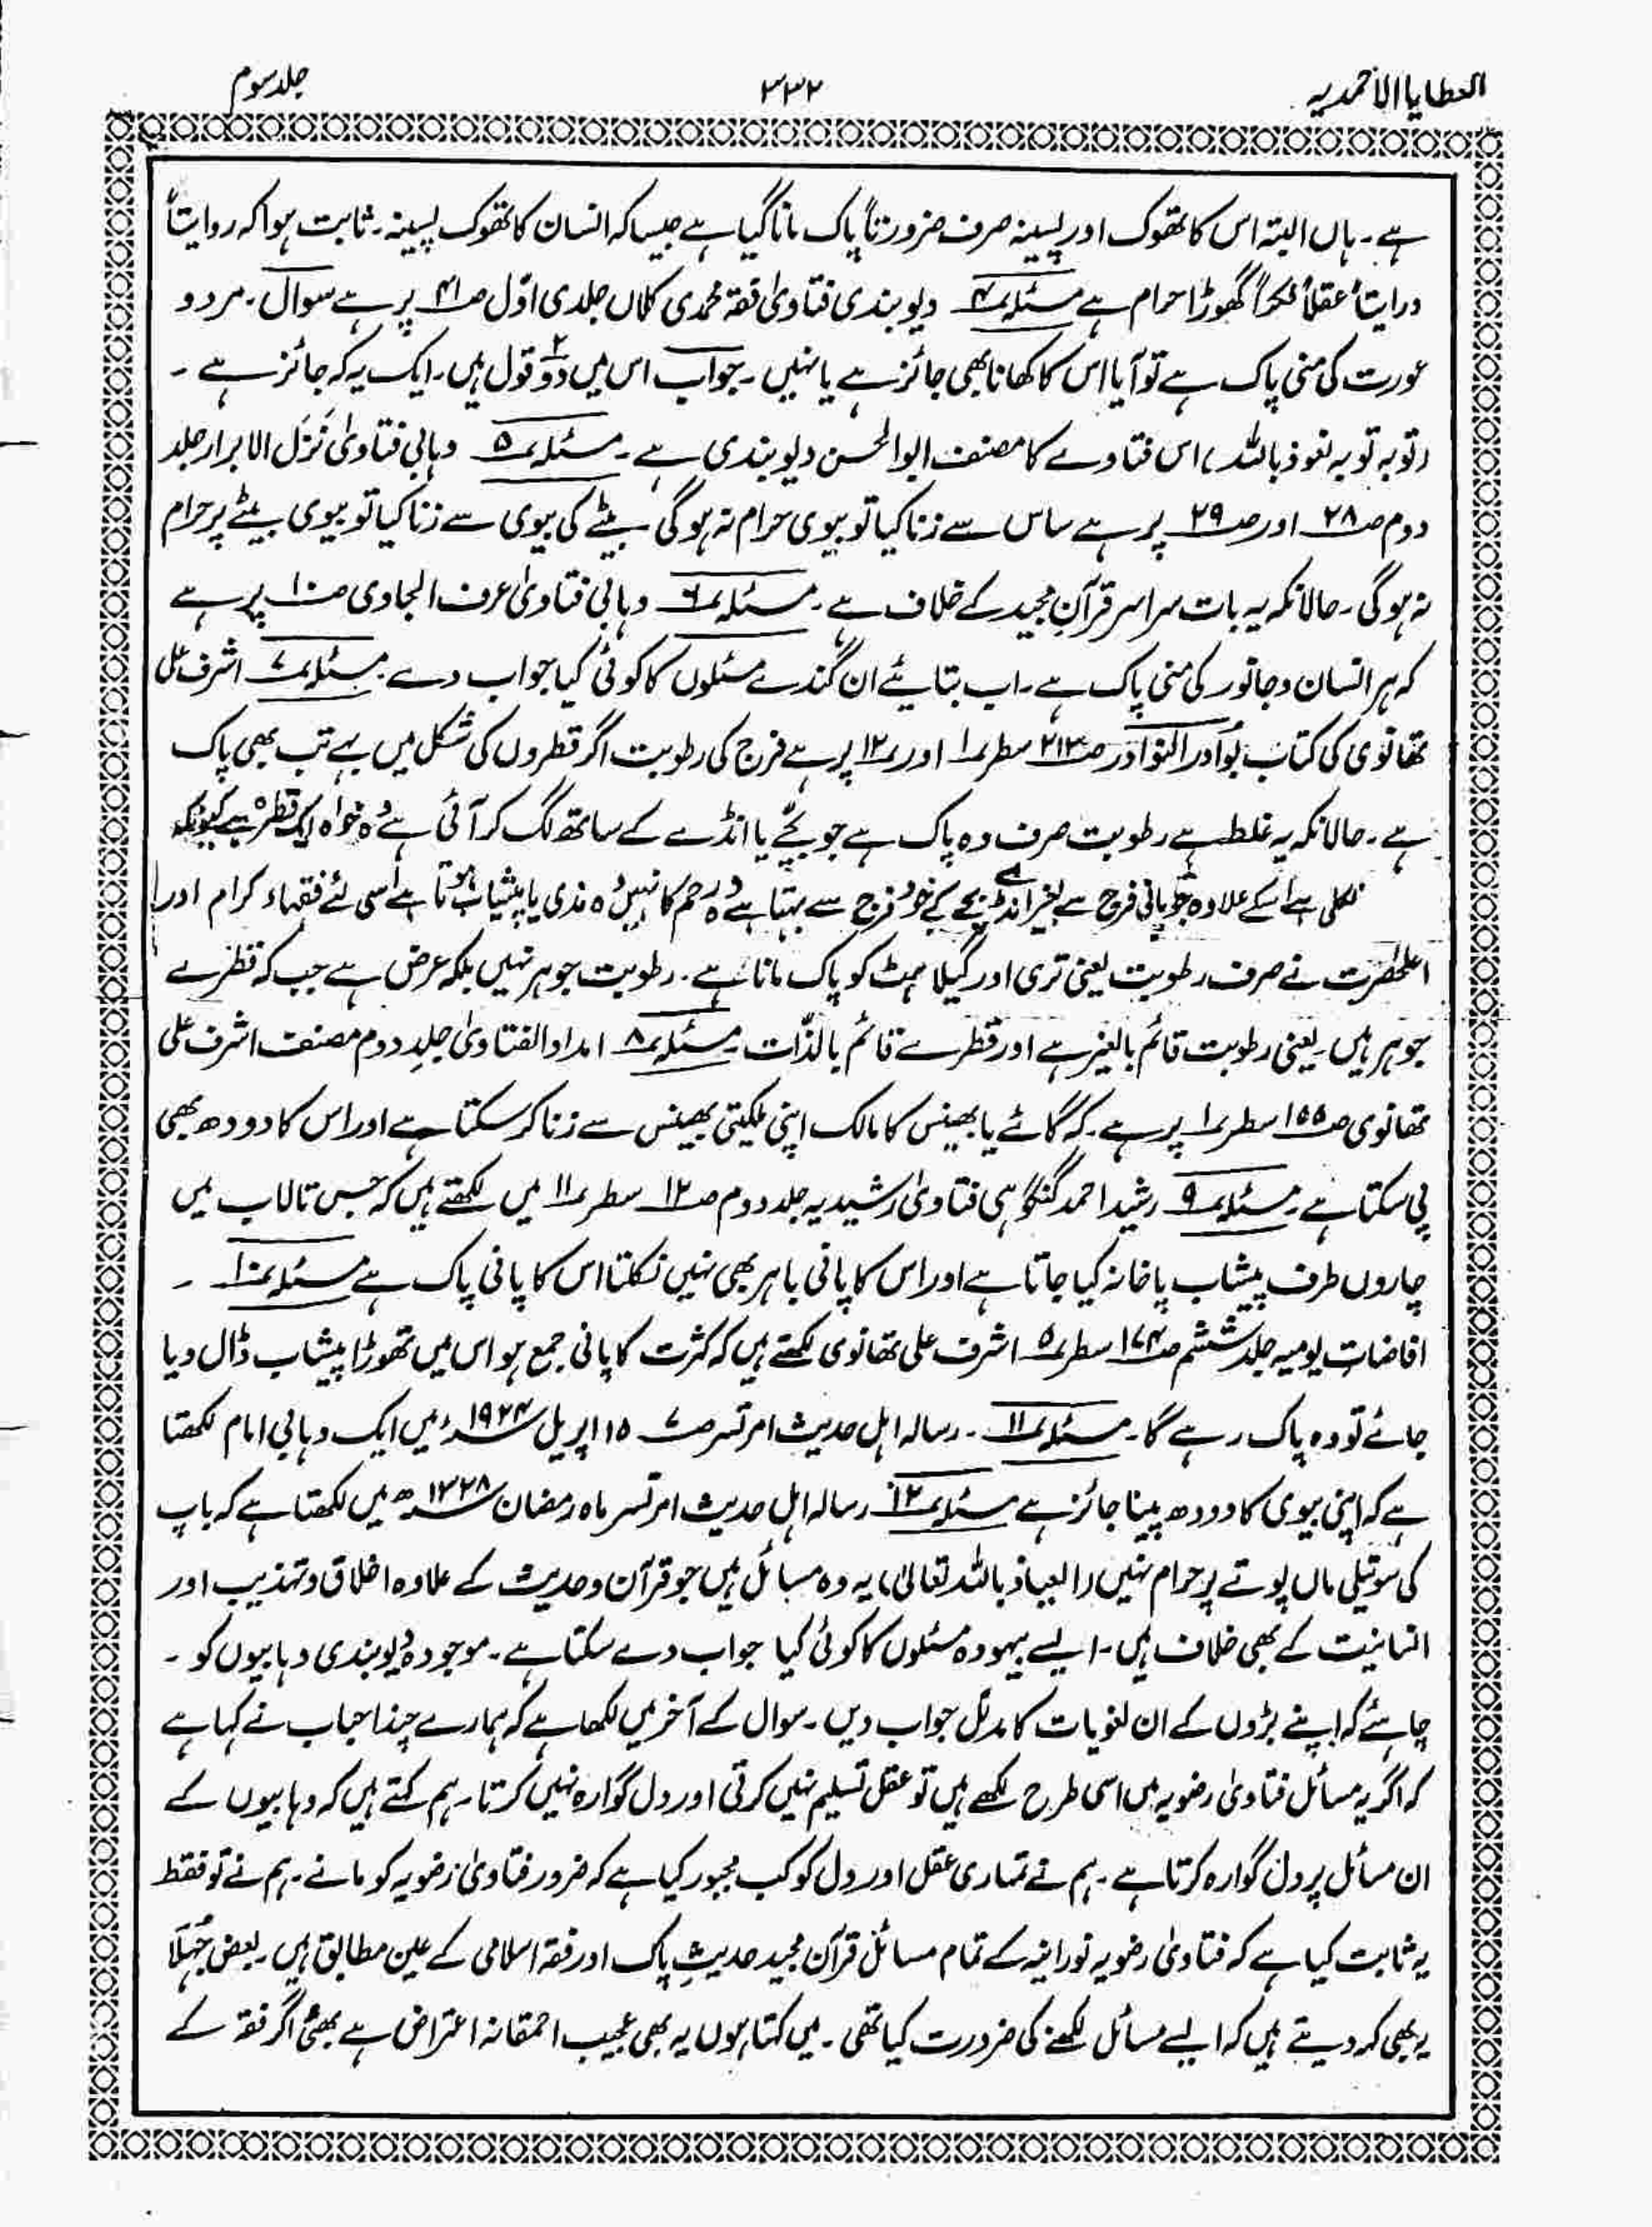 العطایا الاحمدیہ
۳۳۲
جلد سوم
ہے۔ ہاں البتہ اس کا تھوک اور پسینہ صرف ضرورتاً پاک مانا گیا ہے جیسا کہ انسان کا تھوک پسینہ۔ ثابت ہوا کہ روایتاً
درایتاً عقلاً فکراً گھوڑا حرام ہے مسئلہ ۴ دیوبندی فتاویٰ فقہ محمدی کلاں جلدی اوّل صـ۴۱ پر ہے سوال۔ مرد و
عورت کی منی پاک ہے تو آیا اس کا کھانا بھی جائز ہے یا نہیں۔ جواب اس میں دو۲ قول ہیں۔ ایک یہ کہ جائز ہے۔
(توبہ توبہ نعوذ باللہ) اس فتاوے کا مصنف ابوالحسن دیوبندی ہے۔ مسئلہ ۵ وہابی فتاویٰ نَزَل الابرار جلد
دوم صـ۲۸ اور صـ۲۹ پر ہے ساس سے زنا کیا تو بیوی حرام نہ ہوگی۔ بیٹے کی بیوی سے زنا کیا تو بیوی بیٹے پر حرام
نہ ہوگی۔ حالانکہ یہ بات سراسر قرآنِ مجید کے خلاف ہے۔ مسئلہ ۶ وہابی فتاویٰ عرف الجادی صـ۱۰ پر ہے
کہ ہر انسان و جانور کی منی پاک ہے۔ اب بتائیے ان گندے مسئلوں کا کوئی کیا جواب دے۔ مسئلہ ۷ اشرف علی
تھانوی کی کتاب بُوادر النوادر صـ۲۱۳ سطر ۱ اور ۱۲ پر ہے فرج کی رطوبت اگر قطروں کی شکل میں بہے تب بھی پاک
ہے۔ حالانکہ یہ غلط ہے رطوبت صرف وہ پاک ہے جو بچّے یا انڈے کے ساتھ لگ کر آئی ہے وہ خواہ ایک قطرہ ہے کیونکہ
نکلی ہے اسکے علاوہ جو پانی فرج سے بغیر انڈے بچے کے خود فرج سے بہتا ہے وہ رحم کا نہیں وہ مذی یا پیشاب ہوتا ہے اسی لئے فقہاء کرام اور
اعلحٰضرت نے صرف رطوبت یعنی تری اور گیلاہٹ کو پاک مانا ہے۔ رطوبت جوہر نہیں بلکہ عرض ہے جب کہ قطرے
جوہر ہیں۔ یعنی رطوبت قائم بالغیر ہے اور قطرے قائم بالذّات۔ مسئلہ ۸ امداد الفتاویٰ جلدِ دوم مصنف اشرف علی
تھانوی صـ۱۵۵ سطر ۱ پر ہے۔ کہ گائے یا بھینس کا مالک اپنی ملکیتی بھینس سے زنا کر سکتا ہے اور اس کا دودھ بھی
پی سکتا ہے۔ مسئلہ ۹ رشید احمد گنگوہی فتاویٰ رشیدیہ جلد دوم صـ۱۲ سطر ۱۱ میں لکھتے ہیں کہ جس تالاب میں
چاروں طرف پیشاب پاخانہ کیا جاتا ہے اور اس کا پانی باہر بھی نہیں نکلتا اس کا پانی پاک ہے مسئلہ ۱۰۔
افاضات یومیہ جلد ششم صـ۱۷۴ سطر ۵ اشرف علی تھانوی لکھتے ہیں کہ کثرت کا پانی جمع ہو اس میں تھوڑا پیشاب ڈال دیا
جائے تو وہ پاک رہے گا۔ مسئلہ ۱۱۔ رسالہ اہل حدیث امرتسر صـ۷ ۱۵ اپریل ۱۹۲۴ء میں ایک وہابی امام لکھتا
ہے کہ اپنی بیوی کا دودھ پینا جائز ہے مسئلہ ۱۲۔ رسالہ اہل حدیث امرتسر ماہ رمضان ۱۳۲۸ھ میں لکھتا ہے کہ باپ
کی سوتیلی ماں پوتے پر حرام نہیں (العیاذ باللہ تعالیٰ) یہ وہ مسائل ہیں جو قرآن و حدیث کے علاوہ اخلاق و تہذیب اور
انسانیت کے بھی خلاف ہیں۔ ایسے بیہودہ مسئلوں کا کوئی کیا جواب دے سکتا ہے۔ موجودہ دیوبندی وہابیوں کو۔
چاہئے کہ اپنے بڑوں کے ان لغویات کا مدلّل جواب دیں۔ سوال کے آخر میں لکھا ہے کہ ہمارے چند احباب نے کہا ہے
کہ اگر یہ مسائل فتاویٰ رضویہ میں اسی طرح لکھے ہیں تو عقل تسلیم نہیں کرتی اور دل گوارہ نہیں کرتا۔ ہم کہتے ہیں کہ وہابیوں کے
ان مسائل پر دل گوارہ کرتا ہے۔ ہم نے تمہاری عقل اور دل کو کب مجبور کیا ہے کہ ضرور فتاویٰ رضویہ کو مانے۔ ہم نے تو فقط
یہ ثابت کیا ہے کہ فتاویٰ رضویہ نورانیہ کے تمام مسائل قرآن مجید حدیثِ پاک اور فقہ اسلامی کے عین مطابق ہیں۔ بعض جُہلَا
یہ بھی کہہ دیتے ہیں کہ ایسے مسائل لکھنے کی ضرورت کیا تھی۔ میں کہتا ہوں یہ بھی عجیب احمقانہ اعتراض ہے بھئی اگر فقہ کے